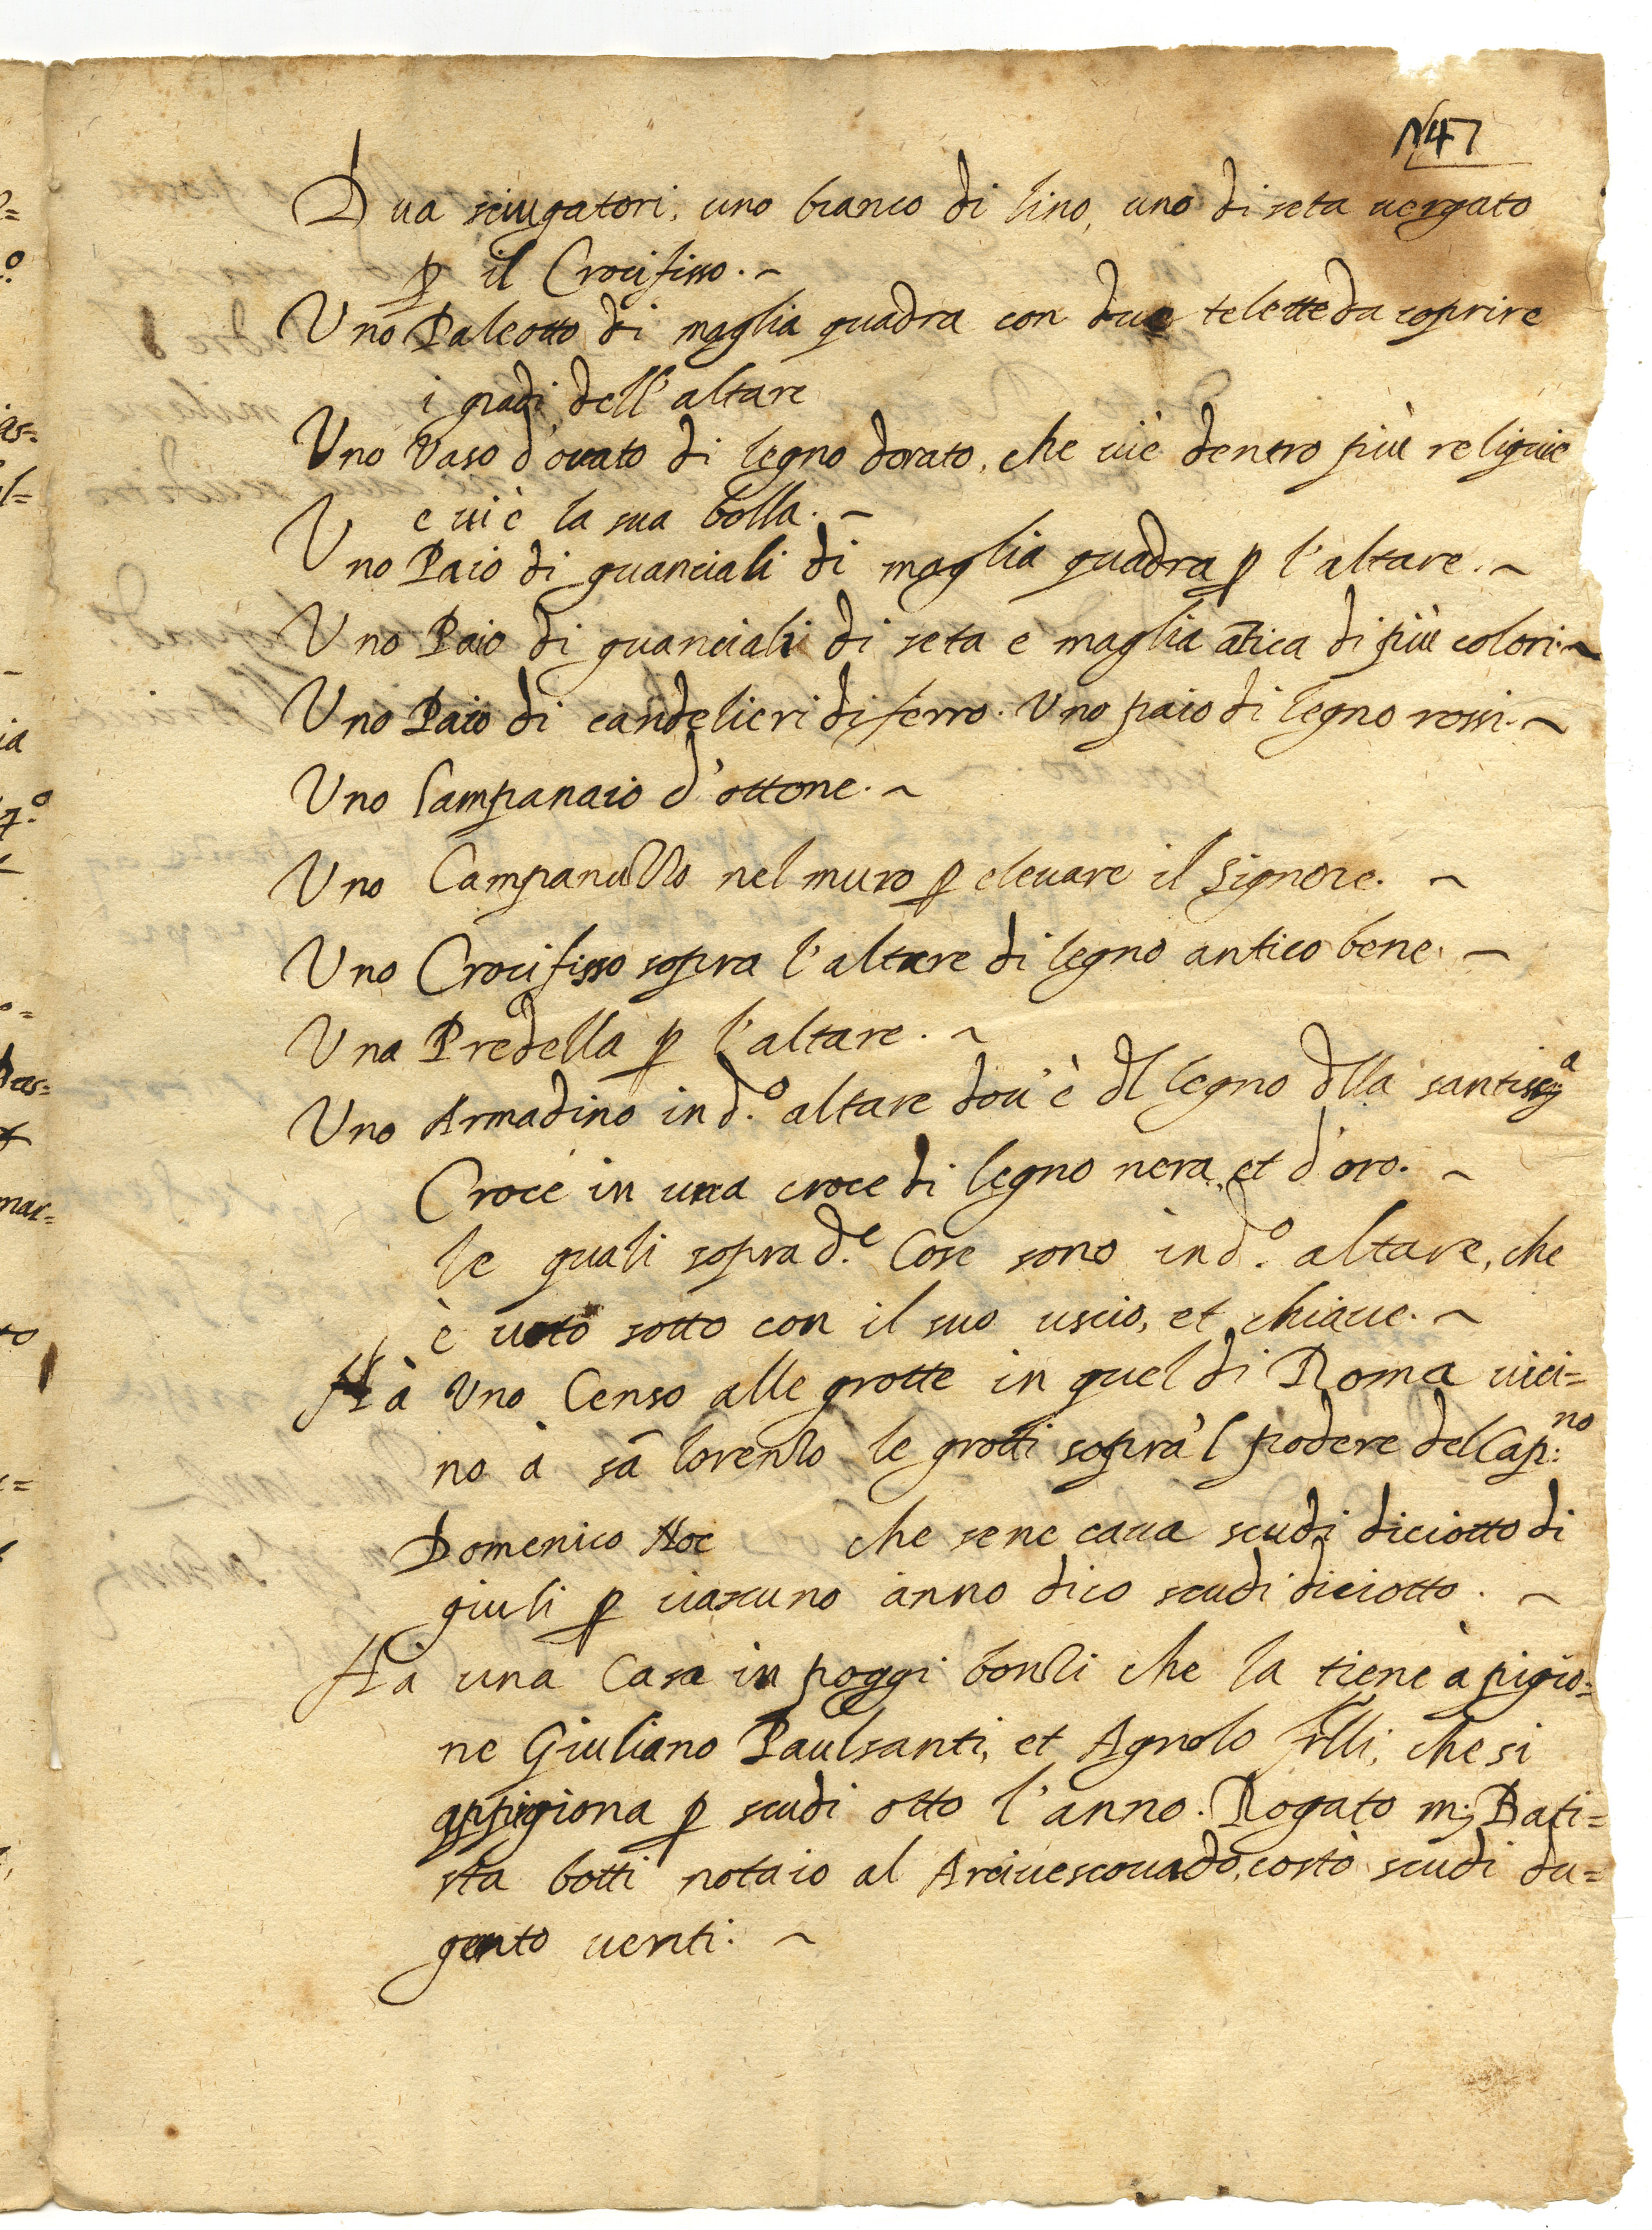 N47
Dua sciugatori, uno bianco di lino, uno di seta vergato
p il Crocifisso. ~
Uno Paleotto di maglia quadra con due telette da coprire
i gradi dell'altare
Uno Vaso d'ovato di legno dorato, che viè dentro più reliquie
e viè la sua bolla. ~
Uno Paio di guanciali di maglia quadra p l'altare. ~
Uno Paio di guanciali di seta e maglia ātica di più colori. ~
Uno Paio di candelieri di ferro. Uno paio di legno rossi. ~
Uno Lampanaio d'ottone. ~
Uno Campanuzzo nel muro p elevare il Signore. ~
Uno Crocifisso sopra l'altare di legno antico bene. ~
Una Predella p l'altare. ~
Uno Armadino in d.o altare dov'è dl legno dlla santiss.a
Croce in una croce di legno nera, et d'oro. ~
le quali soprad.e Cose sono in d.o altare, che
è voto sotto con il suo uscio, et chiave. ~
Hà Uno Censo alle grotte in quel di Roma vici=
no à sā lorenzo le grotti sopra'l podere del Cap:no
Domenico Noe che sene cava scudi diciotto di
giuli p ciascuno anno dico scudi diciotto. ~
Hà una Casa in poggi bonzi che la tiene à pigio=
ne Giuliano Paulsanti, et Agnolo frlli, che si
appigiona p scudi otto l'anno. Rogato m; Bati=
sta botti notaio al Arcivescovado, costò scudi du=
gento venti. ~